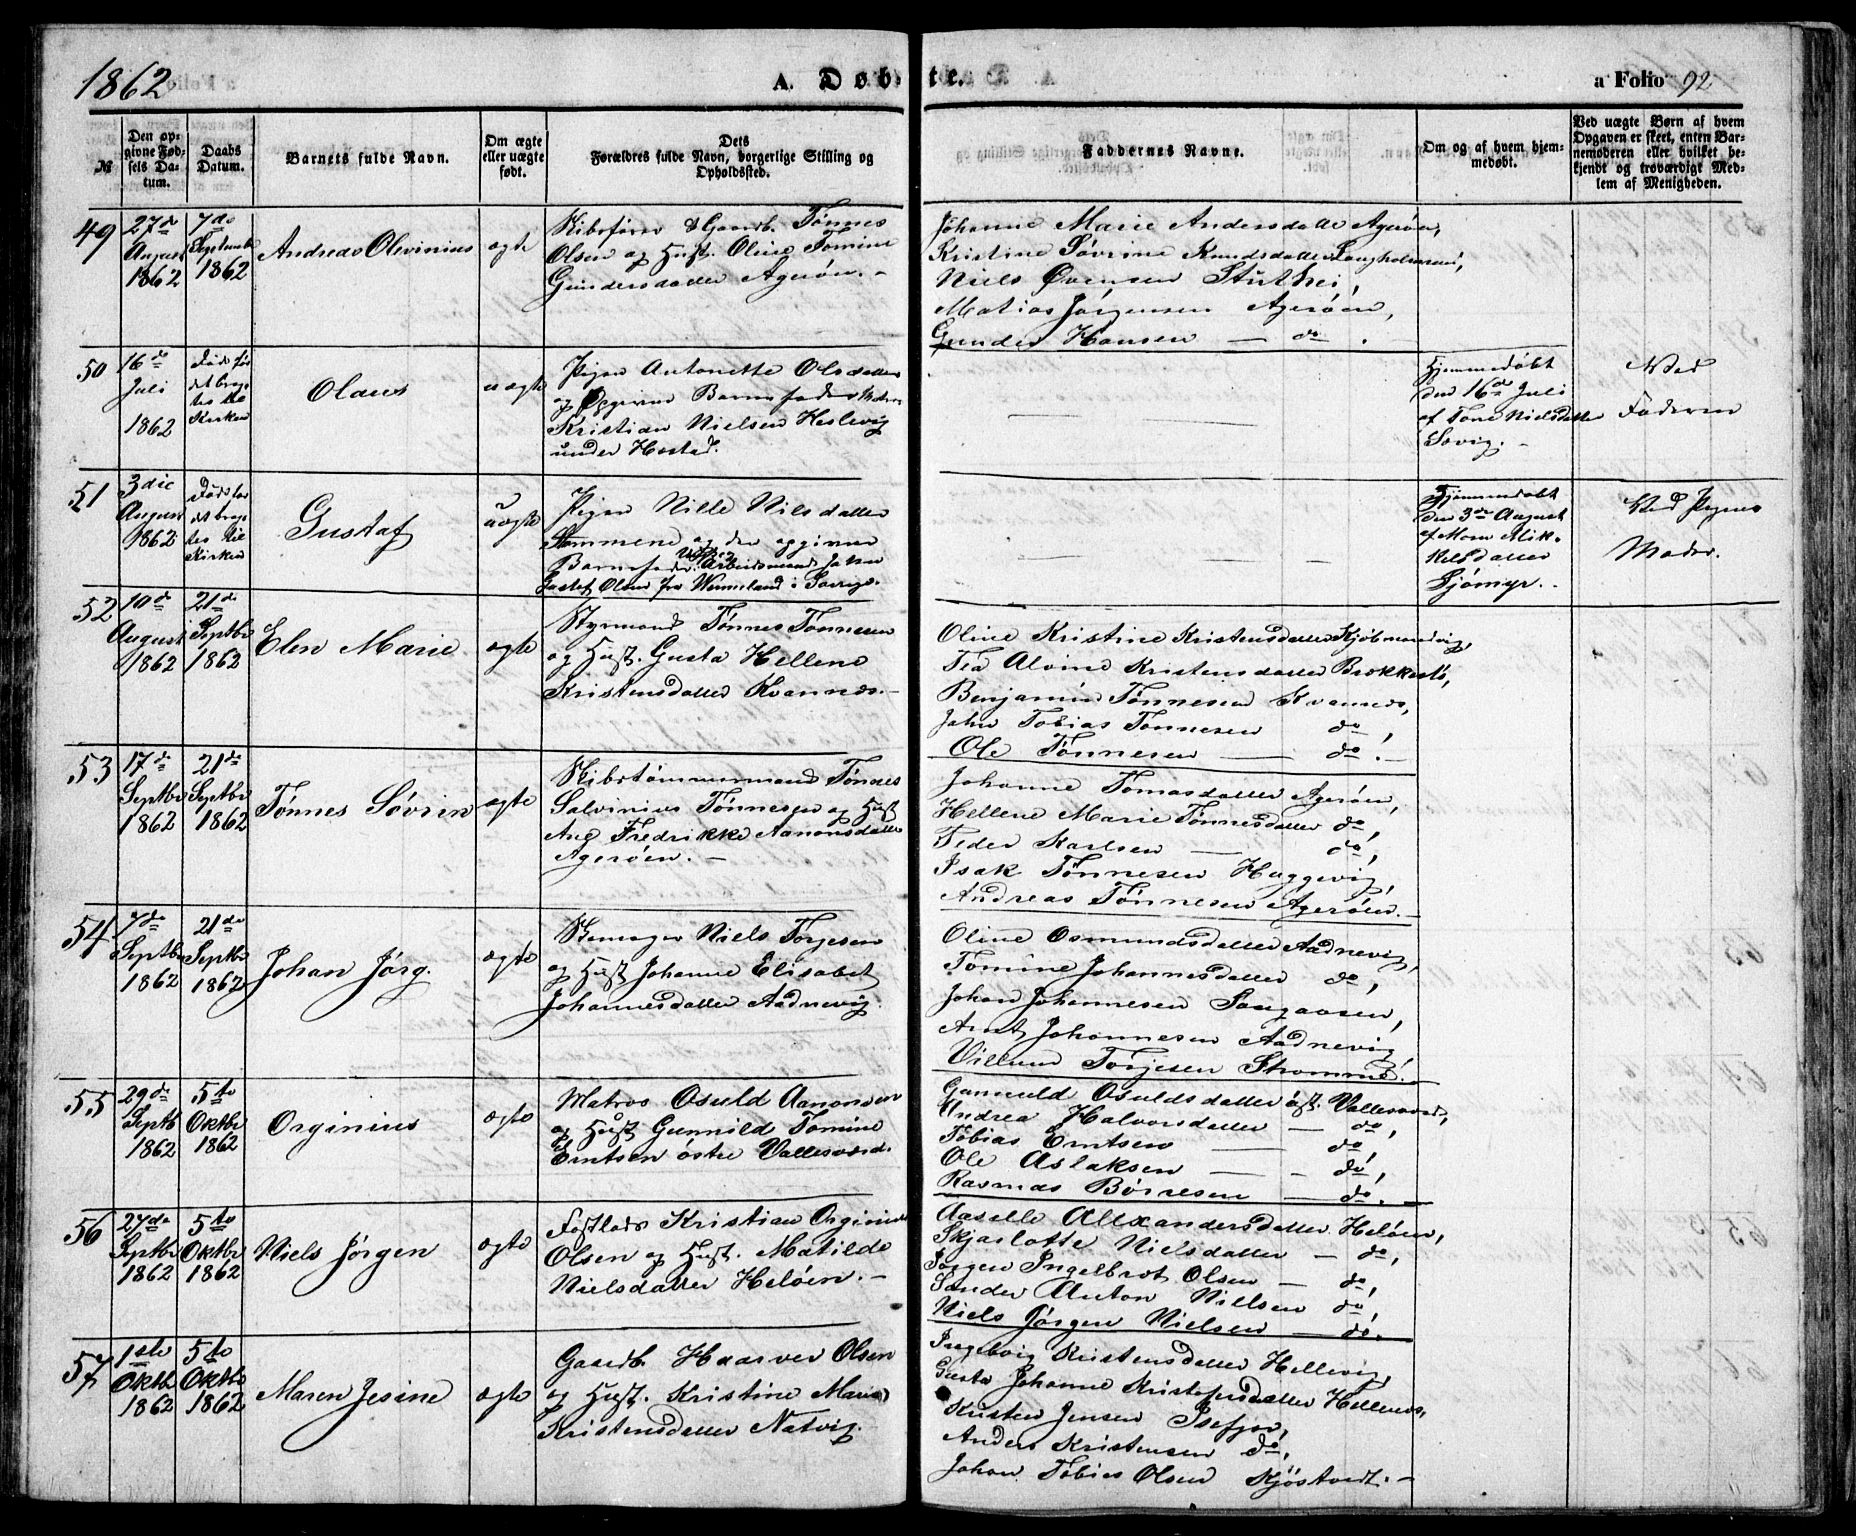 1862
A. Døbte.
a Folio 92
№
Den opgivne Fødsels Datum.
Daabs Datum.
Barnets fulde Navn.
Om ægte eller uægte født.
Dets Forældres fulde Navn, borgerlige Stilling og Opholdssted.
Faddernes Navne.
Om og af hvem hjemmedøbt.
Ved uægte Børn af hvem Opgaven er skeet, enten Barnemoderen eller hvilket bekjendt og troværdigt Medlem af Menigheden.
49
27de August 1862
7de Septembr 1862
Andreas Olevinius
ægte
Skibsfører & Gaardb. Tønnes
Olsen og Hust. Oline Tomine
Gundersdatter Agerøen. -
Johanne Marie Andersdatte Agerøen,
Kristine Søvrine Knudsdatter Langholmen,
Niels Evensen Stuthei,
Matias Jørgensen Agerøen,
Gunder Hansen — do.
50
16de Juli 1862
Olaus
uægte
Pigen Antonette Olsdatter
og Opgiven Barnefader
Kristian Nielsen Heslevig
under
Hjemmedøbt
den 16de Juli
af Tone Nielsdatte
Ved
Faderen
51
3die August 1862
Gustaf
uægte
Pigen Nille Nilsdatter
og den opgivne
Barnefader Arbeidsmand Johan
Gustaf Olsen fra Wermeland i Sverige.
Hjemmedøbt
den 3die August
af
kelsdatter
Sjømyr. -
Ved Pigens
Moder.
52
10de August 1862
21de Septbr 1862
Elen Marie
ægte
Styrmand Tønnes Tønnesen
og Hust. Gusta Hellene
Kristensdatter Kvannes. -
Oline Kristine Kristensdatter Kjøbmandsvig,
Tea Alvine Kristensdatter Brækkestø,
Benjamin Tønnesen Kvannes,
John Tobias Tønnesen do,
Ole Tønnesen — do. -
53
17de Septbr 1862
21de Septbr 1862
Tønnes Søvrin
ægte
Skibstømmermand Tønnes
Salvinius Tønnesen og Hust
Ane Fredrikke Aanonsdatter
Agerøen. -
Johanne Tomasdatter Agerøen,
Hellene Marie Tønnesdatter do,
Peder Karlsen — do,
Isak Tønnesen Haggevig,
Andreas Tønnesen Agerøen. -
54
7de Septbr 1862
21de Septbr 1862
Johan Jørg.
ægte
Skomager Niels Torjesen
og Hust Johanne Elisabet
Johannesdatter Aadnevig.
Oline Osmundsdatter Aadnevig,
Tomine Johannesdatter do,
Johan Johannesen
Arnt Johannesen Aadnevig,
Villum Torjesen Strømme.
55
29de Septb 1862
5te Oktbr 1862
Orginius
ægte
Matros Osuld Aanonsen
og Hust Gunnild Tomine
Erntsen østre Vallesværd.
Gunnuld Osuldsdatter øst. Vallesværd,
Andrea Halvorsdatter — do,
Tobias Erntsen — do,
Ole Aslaksen — do,
Rasmus Børresen — do.
56
27de Septbr 1862
5te Oktbr 1862
Niels Jørgen
ægte
Kristian Orginius
Olsen og Hust. Matilde
Nielsdatter Heløen. -
Aaselle Allxandersdatter Heløen,
Skjarlotte Nielsdatter — do,
Jørgen Ingelbrot Olsen — do,
Sander Anton Nielsen do,
Niels Jørgen Nielsen — do.
57
1ste Oktbr 1862
5te Oktbr 1862
Maren Jesine
ægte
Gaardb. Haarver Olsen
og Hust. Kristine Marie
Kristensdatter Natvig.
Ingebvig Kristensdatter Hellevig,
Gusta Johanne Kristofersdatter
Kristen Jensen
Anders Kristensen do,
Johan Tobias Olsen Kjøstvedt. -